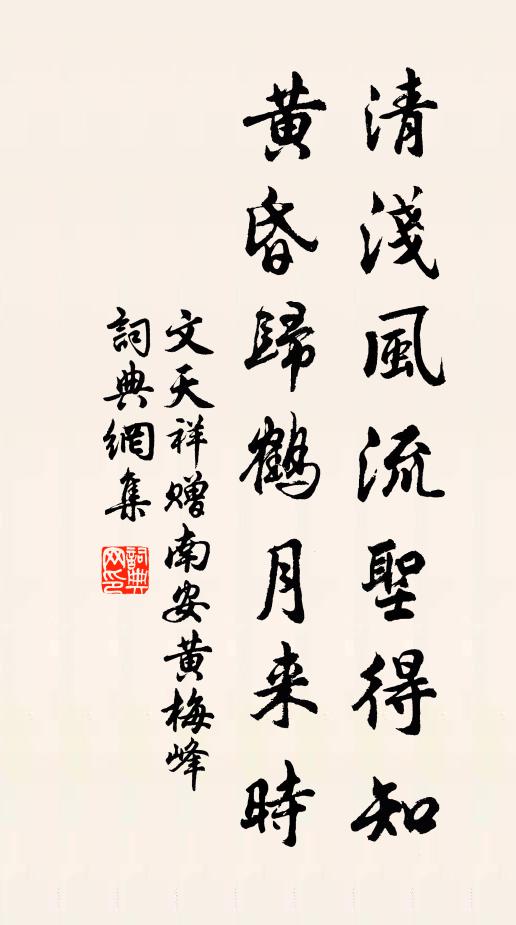 清淺風流聖得知
黄昏歸鶴月来時
文天祥贈南安黄梅峰
詞典網集
詞典網印